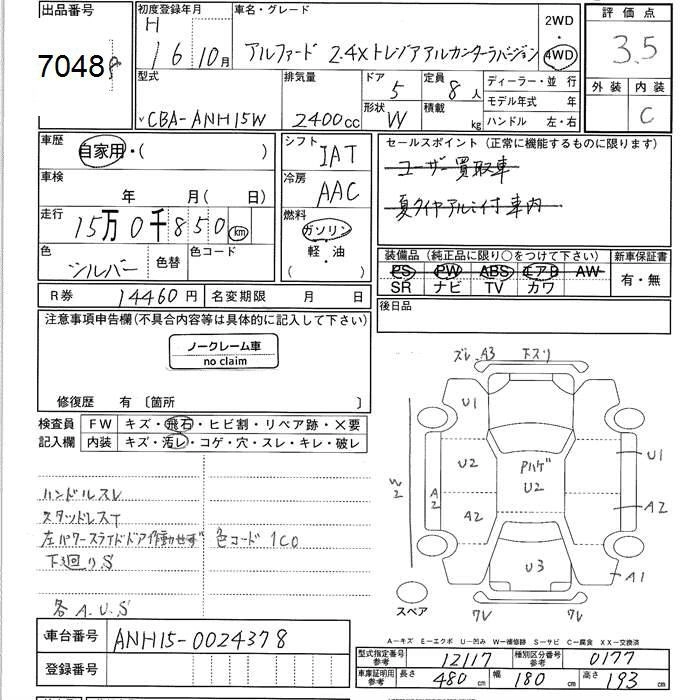 出品番号 初度登録年月 車名・グレード 2WD 評価点
7048 H 16 10月 アルファード 2.4X トレゾア アルカンターラバージョン ・ 4WD 3.5
型式 排気量 ドア 5 定員 8人 ディーラー・並行 外装 内装
CBA-ANH15W 2400cc 形状 W 積載 kg モデル年式 年 C
ハンドル 左・右
車歴 自家用・( ) シフト IAT セールスポイント(正常に機能するものに限ります)
ユーザー買取車
車検 年 月( 日) 冷房 AAC
夏タイヤアルミ付車内
走行 15万0千850km 燃料 ガソリン
軽・油
( )
色 シルバー 色替 色コード
装備品(純正品に限り○をつけて下さい) 新車保証書
PS PW ABS エアB AW 有・無
SR ナビ TV カワ
R券 14460円 名変期限 月 日 後日品
注意事項申告欄(不具合内容等は具体的に記入して下さい)
ノークレーム車
no claim
修復歴 有 〔箇所 〕
検査員 FW キズ・飛石・ヒビ割・リペア跡・X要
記入欄 内装 キズ・汚レ・コゲ・穴・スレ・キレ・破レ
ハンドルスレ
スタッドレスT
左パワースライドドア作動せず 色コード 1C0
下廻りS
各A.U.S
ズレ.A3 下スリ
U1
U1
U2 Pハゲ U2
W2 A2 A2 A2
U3 A1
スペア 7V 7V
A-キズ E-エクボ U-凹み W-補修跡 S-サビ C-腐食 XX-交換済
車台番号 ANH15-0024378
型式指定番号 参考 12117 種別区分番号 参考 0177
登録番号
車庫証明用 参考 長さ 480cm 幅 180cm 高さ 193cm